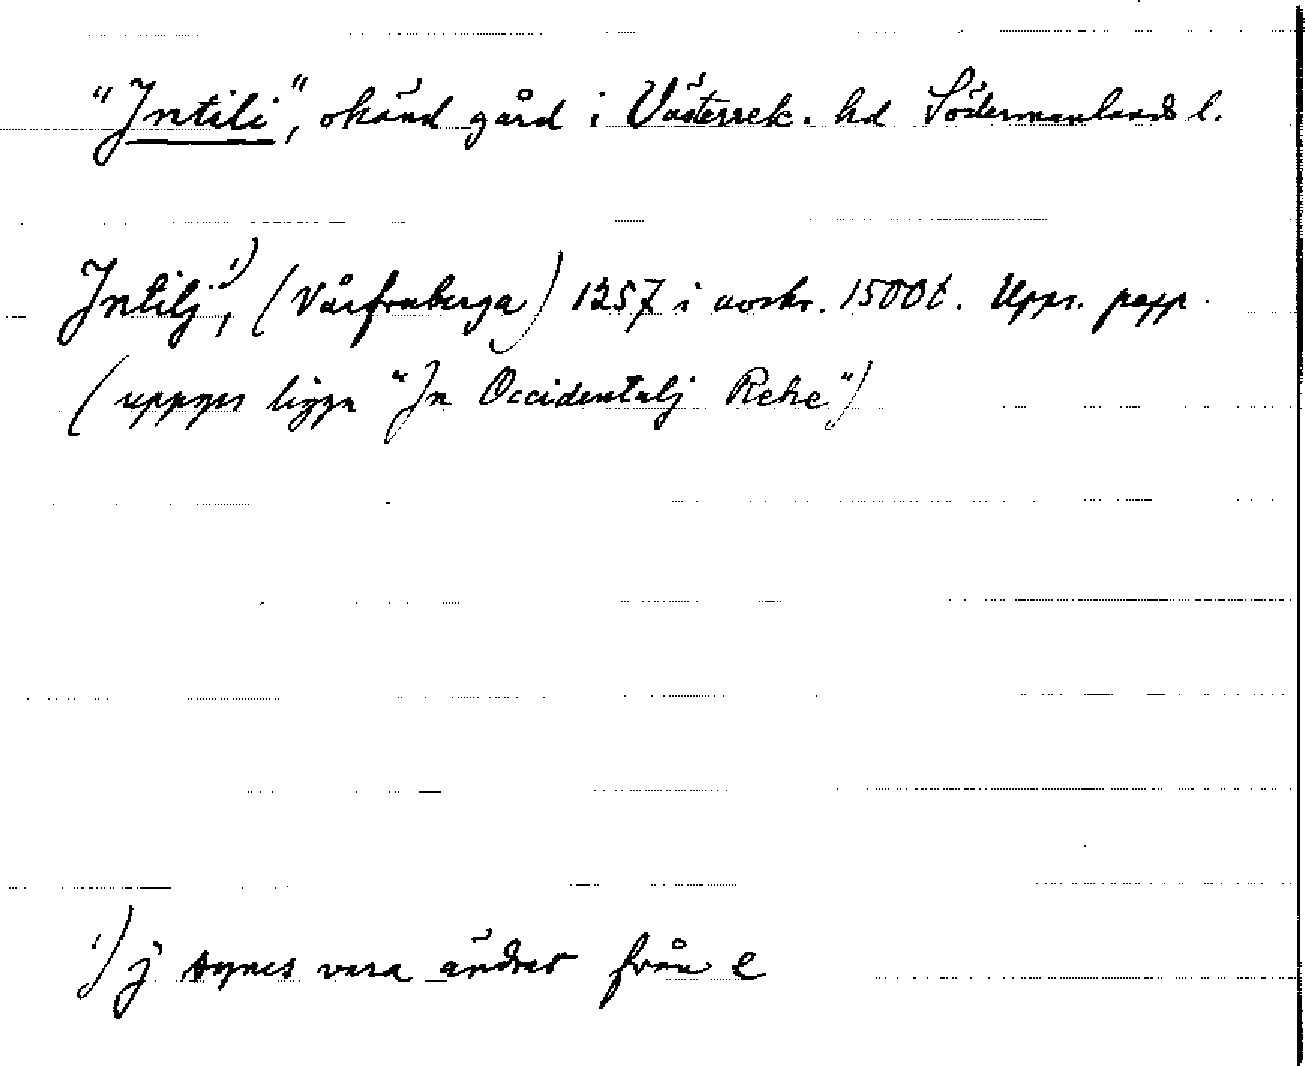 "Intili", okänd gård i Västerrek. hd Södermanlands l.
Intilj¹⁾, (Vårfruberga) 1257 i avskr. 1500t. Upps. papp.
(uppges ligga "In Occidentalj Reke")
¹⁾ j synes vara ändrat från e